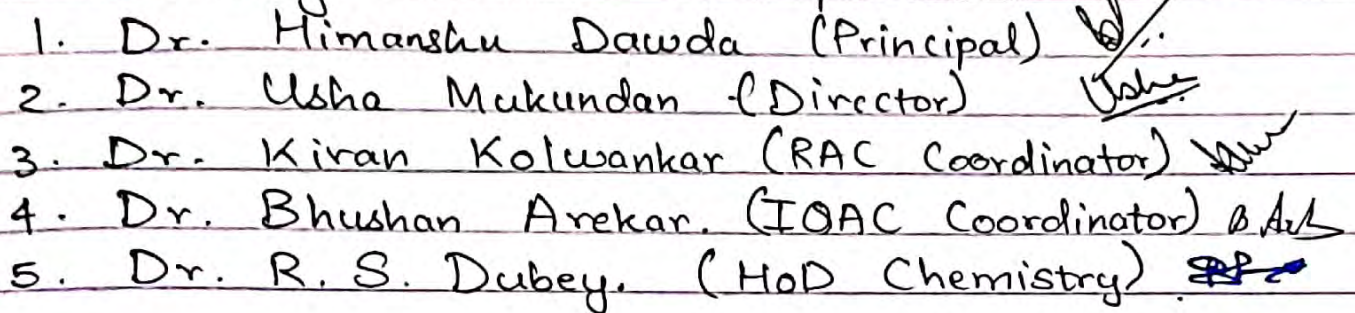 1. Dr. Himanshu Dawda (Principal)
2. Dr. Usha Mukundan (Director) Usha
3. Dr. Kiran Kolwankar (RAC Coordinator)
4. Dr. Bhushan Arekar. (IQAC Coordinator)
5. Dr. R. S. Dubey. (HoD Chemistry)